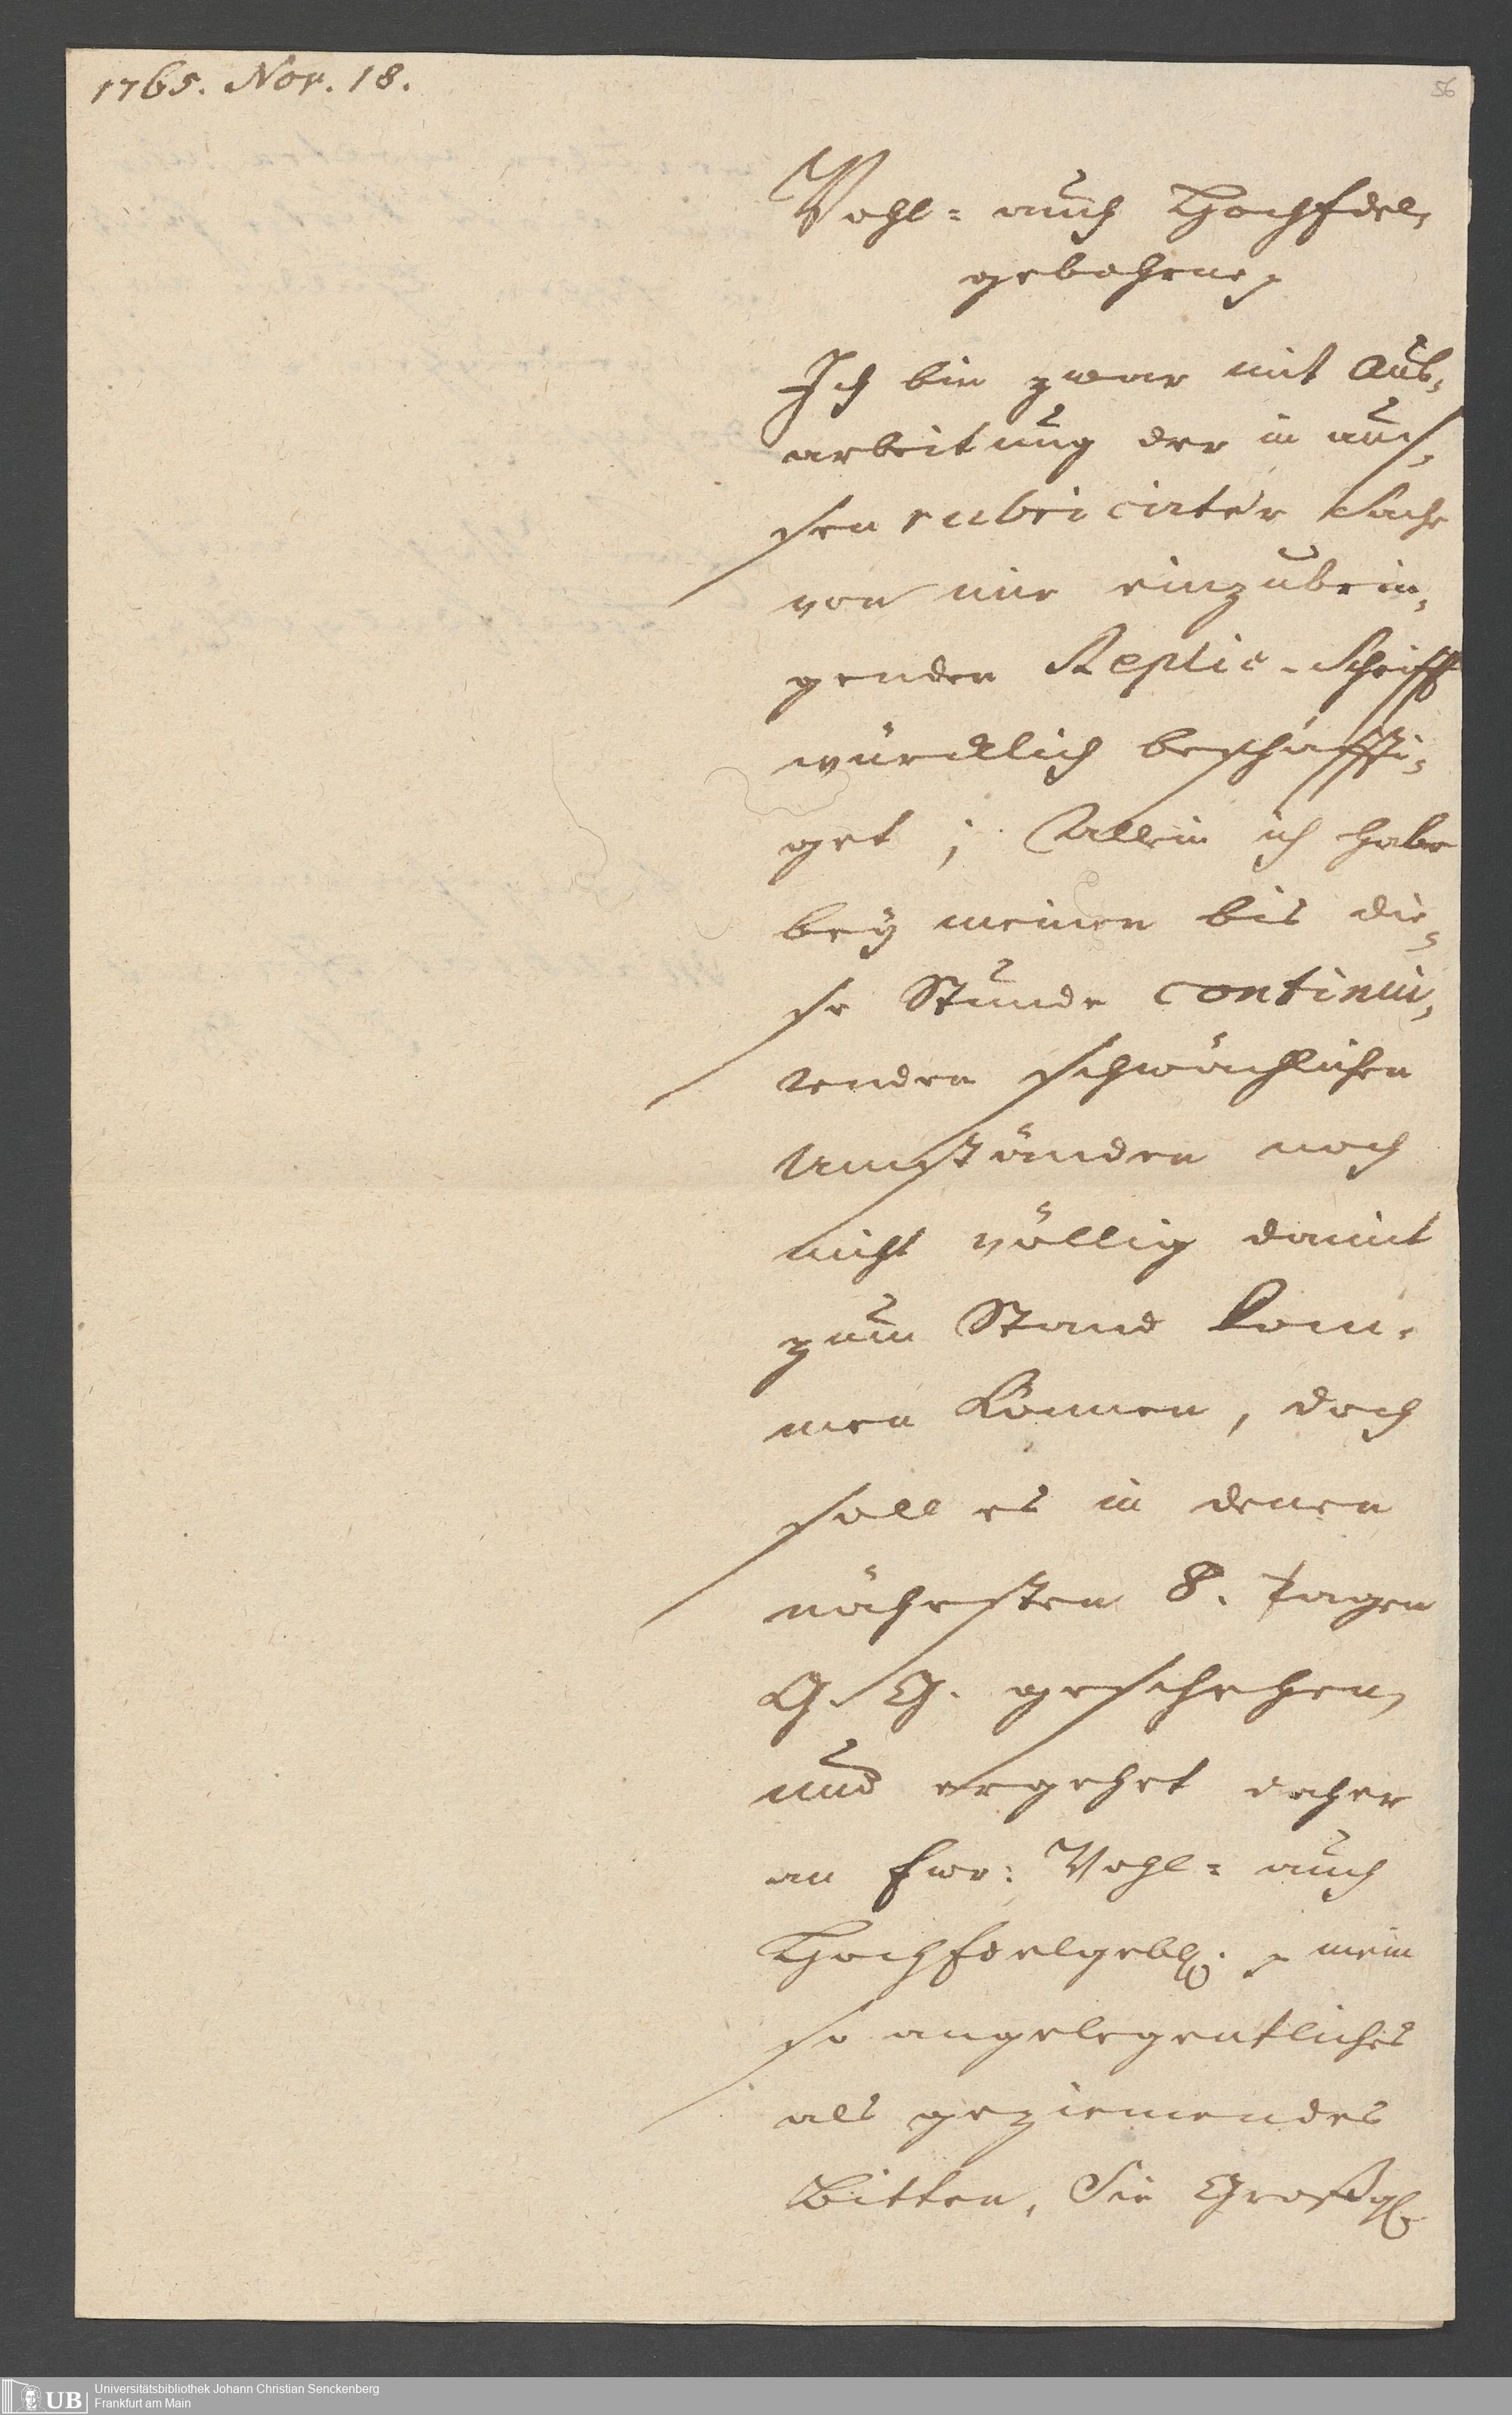 1765. Nov. 18.
56
Wohl- auch HochEdel-
gebohrne p
Ich bin zwar mit Aus-
arbeitung der in aus-
sen rubricirter Sache
von mir einzubrin-
genden Replic-Schrifft
würcklich beschäffti-
get; Allein ich habe
bey meinen bis die-
se Stunde continui-
renden schwächlichen
Umständen noch
nicht völlig damit
zum Stand kom-
men können, doch
soll es in denen
nächsten 8. Tagen
G. G. geschehen,
und ergehet daher
an Ewr: Wohl- auch
HochEdelgeb. p mein
so angelegentliches
als geziemendes
Bitten, Sie Großg.
UB
Universitätsbibliothek Johann Christian Senckenberg
Frankfurt am Main